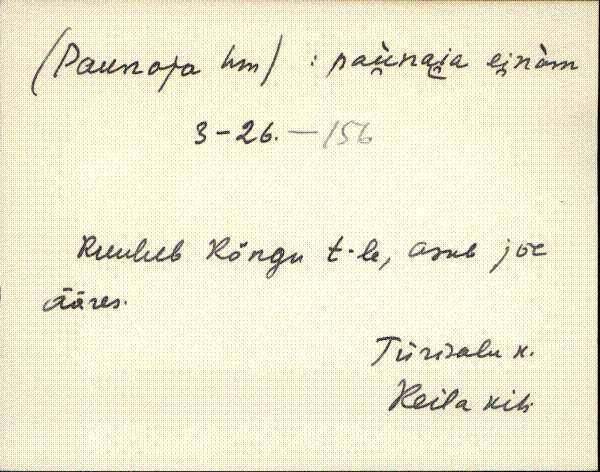 (Paunoja hm) : paùnaia einàm
3-26. — 156
Kuulub Kõngu t-le, asub jõe
ääres.
Türisalu k.
Keila kih